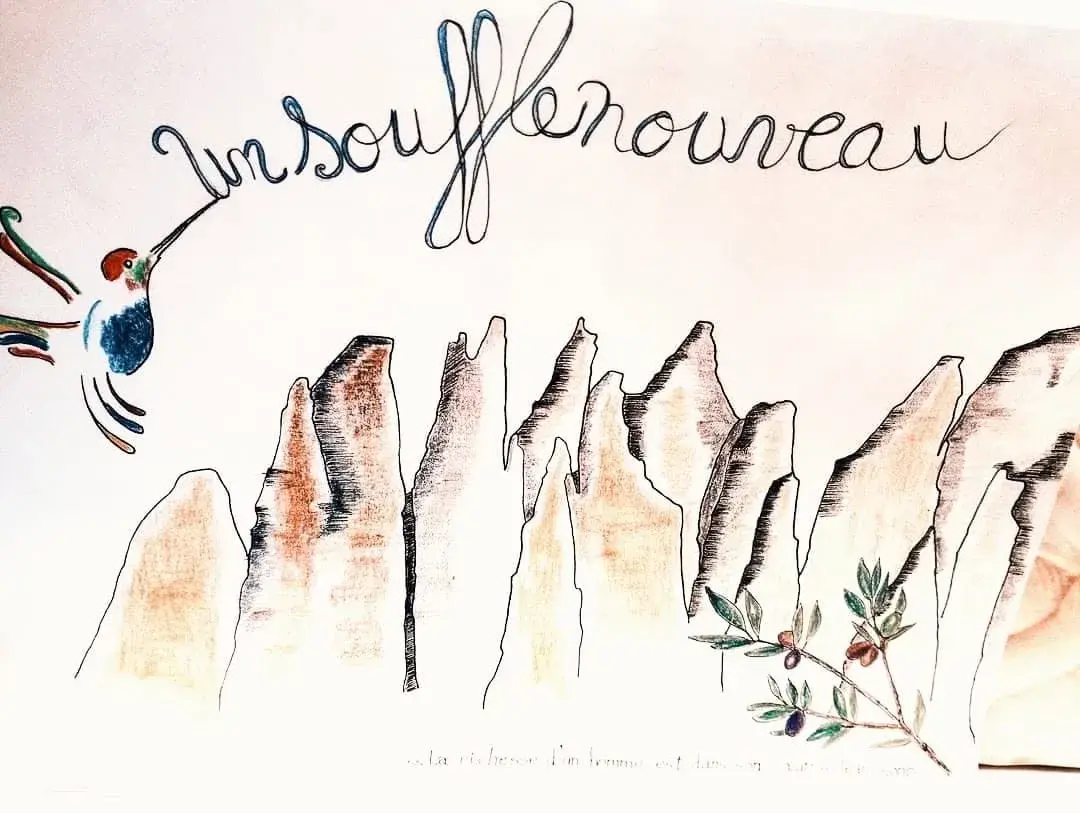 un souffle nouveau
La richesse d'un homme est dans son